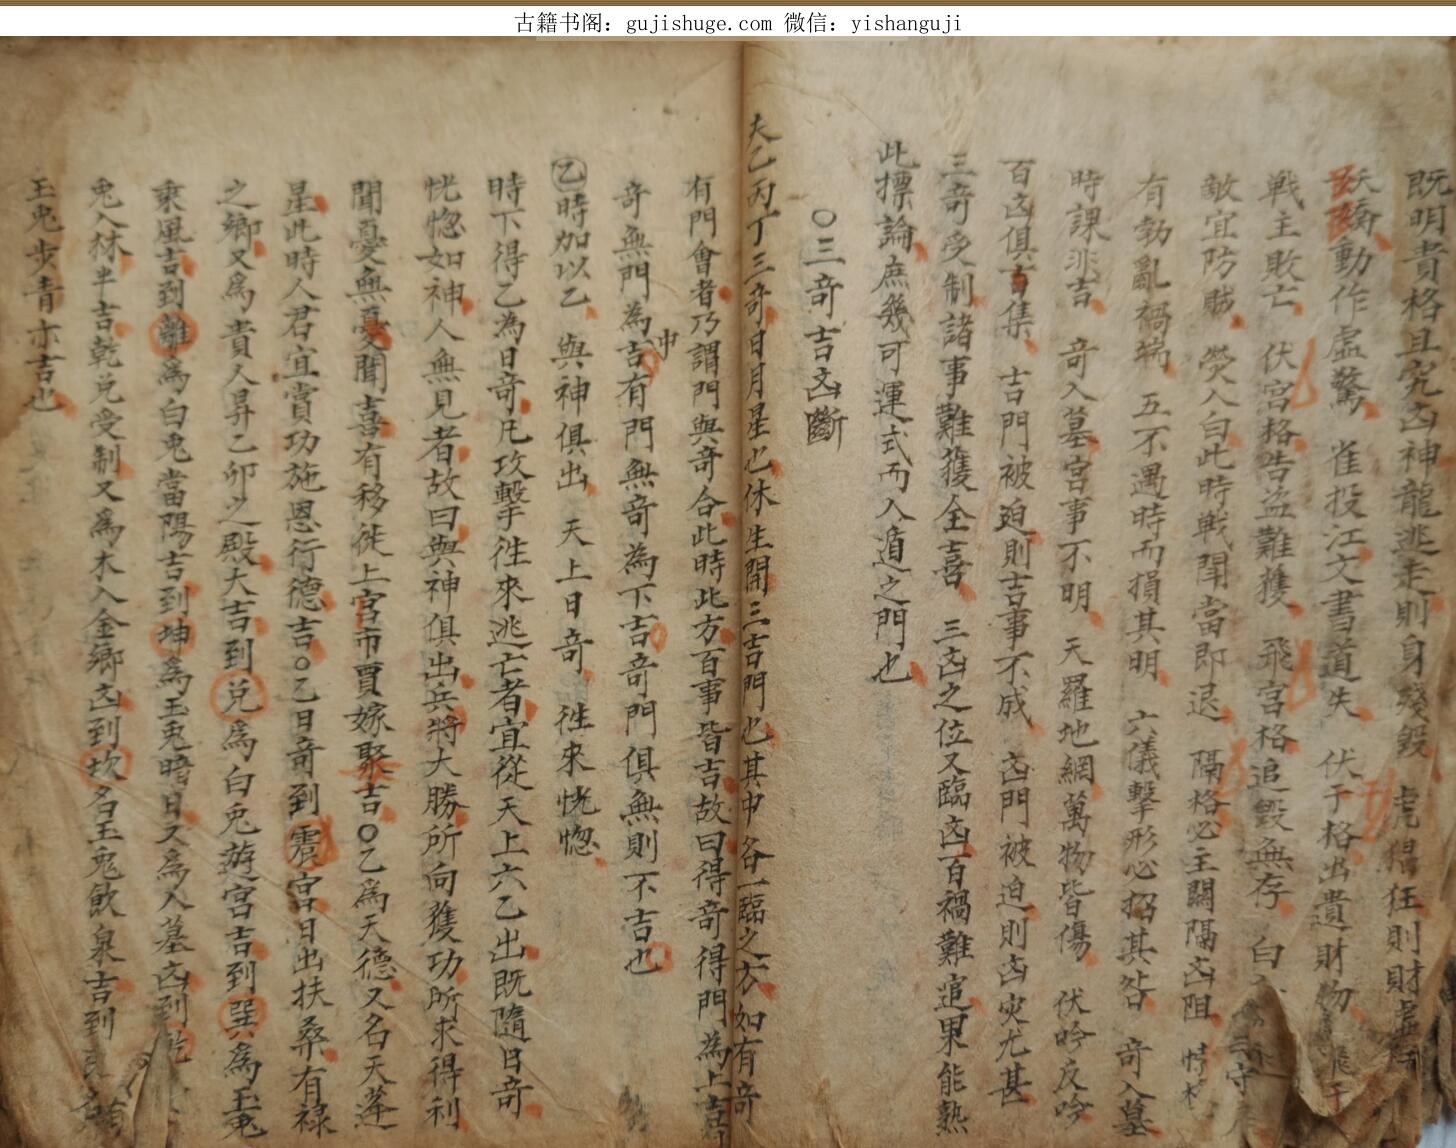 古籍书阁：gujishuge.com 微信：yishanguji
既明貴格且究凶神龍逃走則身殘毀 虎猖狂則財虛
妖矯動作虛驚 雀投江文書道失 伏于格出遺財物 飛干
戦主敗亡 伏宮格告盜難獲 飛宮格追毀無存 白入
敵宜防賊 熒入白此時戦闘當即退 隔格必主關隔凶阻 時格
有勃亂禍端 五不遇時而損其明 六儀擊形必招其咎 奇入墓
時課兆吉 奇入墓宮事不明 天羅地網萬物皆傷 伏吟反吟
百凶俱百集 吉門被迫則吉事不成 凶門被迫則凶灾尤甚
三奇受制諸事難獲全喜 三凶之位又臨凶百禍難逭果能熟
此摽論庶幾可運式而入遁之門也
○三奇吉凶斷
夫乙丙丁三奇日月星也休生開三吉門也其中各一臨之方如有奇
有門會者乃謂門與奇合此時此方百事皆吉故曰得奇得門為上吉
奇無門為中吉有門無奇為下吉奇門俱無則不吉也
乙時加以乙 與神俱出 天上日奇 徃來恍惚
時下得乙為日奇凡攻擊徃來逃亡者宜從天上六乙出既隨日奇
恍惚如神人無見者故曰與神俱出兵將大勝所向獲功所求得利
聞憂無憂聞喜有移徙上官市賈嫁聚吉○乙爲天德又名天蓬
星此時人君宜賞功施恩行德吉○乙日奇到震宮日出扶桑有祿
之鄉又爲貴人昇乙卯之殿大吉到兌爲白兎遊宮吉到巽爲玉兎
乘風吉到離爲白兎當陽吉到坤爲玉兎暗日又爲入墓凶到乾
兎入林半吉乾兌受制又爲木入金鄉凶到坎名玉兎飲泉吉到艮名
玉兎步青亦吉也